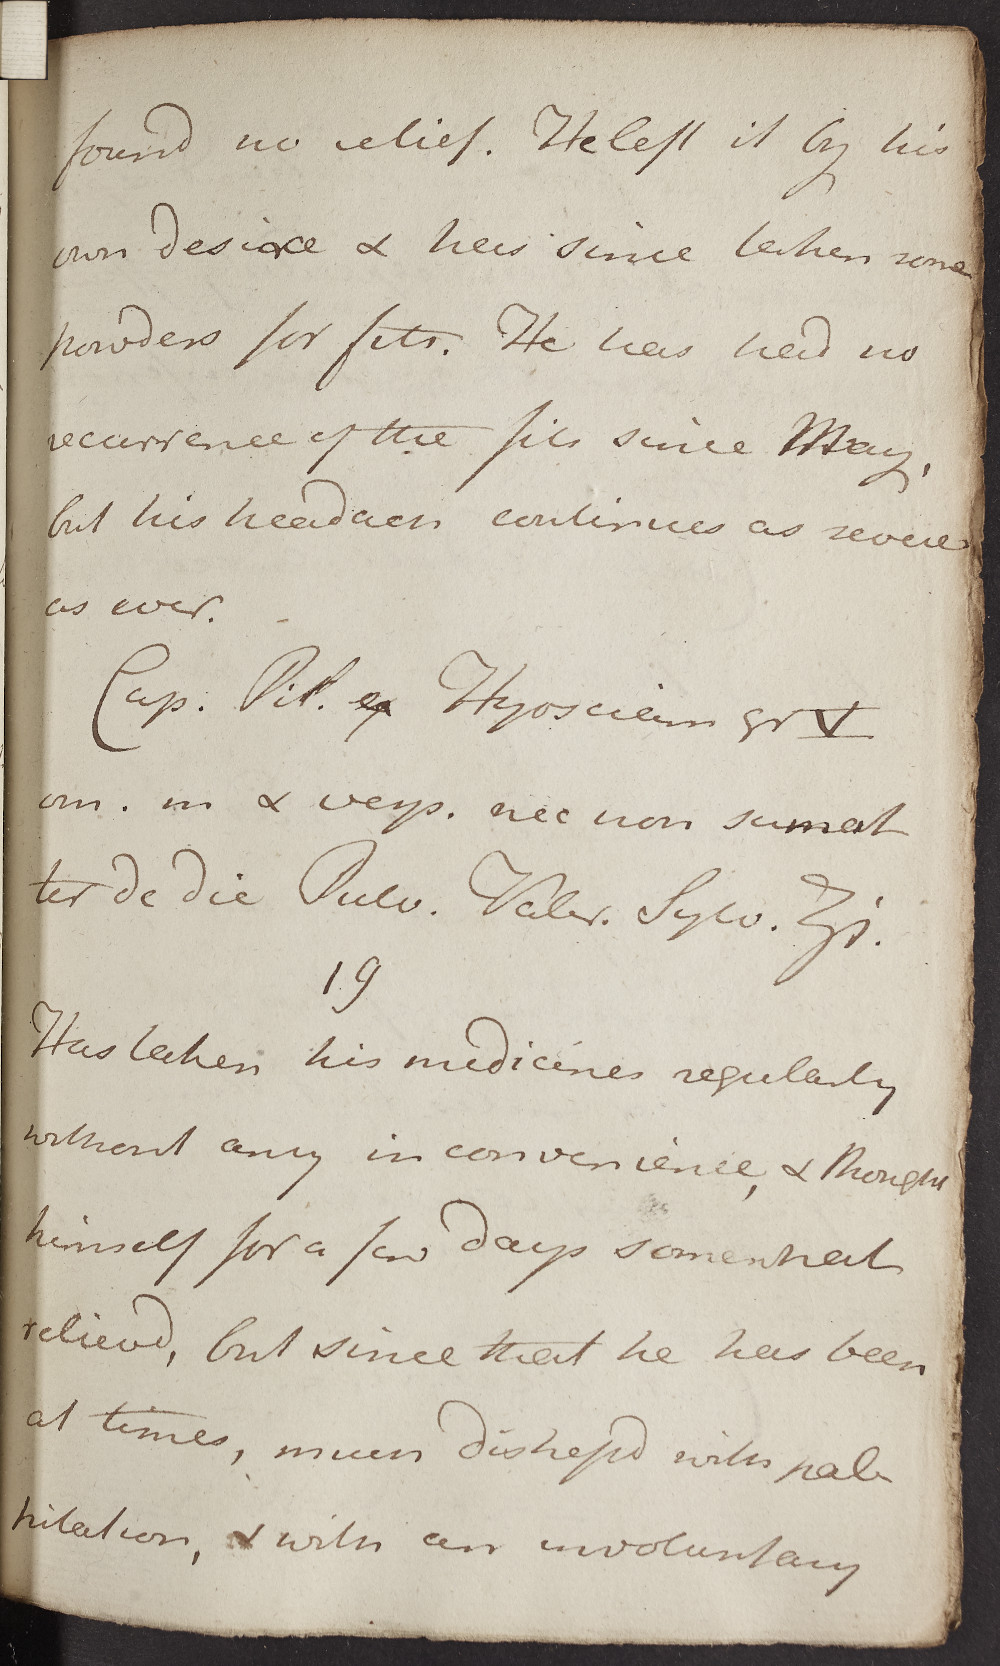 found no relief. He left it by his
own desire & has since taken some
powders for fits. He has had no
recurrence of the fits since May,
but his headach continues as severe
as ever.
Cap. Pil. ex Hyosciam gr V
om. m & vesp. nec non sumat
ter de die Pulv. Valer. Sylv. ʒi.
19
Has taken his medicines regularly
without any inconvenience, & thought
himself for a few days somewhat
relievd, but since that he has been
at times, much distressd with pal-
pitation, & with an involuntary